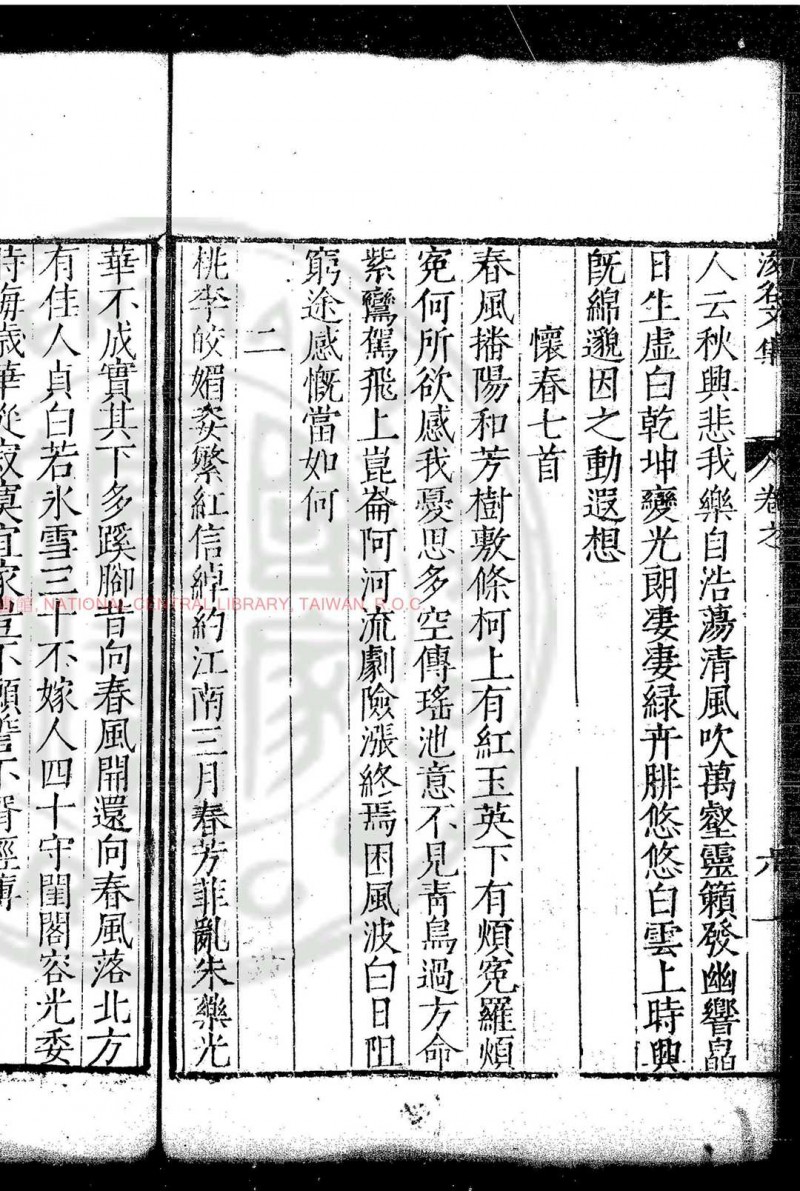 人云秋興悲我樂自浩蕩清風吹萬壑靈籟發幽響皛
日生虛白乾坤變光朗凄凄綠卉腓悠悠白雲上時興
旣綿邈因之動遐想
懷春七首
春風播陽和芳樹敷條柯上有紅玉英下有煩寃羅煩
寃何所欲感我憂思多空傳瑤池意不見靑鳥過方命
紫鸞駕飛上崑崙阿河流劇險漲終焉困風波白日阻
窮途感慨當如何
二
桃李皎媚姿繁紅信綽約江南三月春芳菲亂朱藥光
華不成實其下多蹊腳昔向春風開還向春風落北方
有佳人貞白若氷雪三十不嫁人四十守閨閣容光委
時海歲華從寂莫宜家豈不願
NATIONAL CENTRAL LIBRARY, TAIWAN, R.O.C